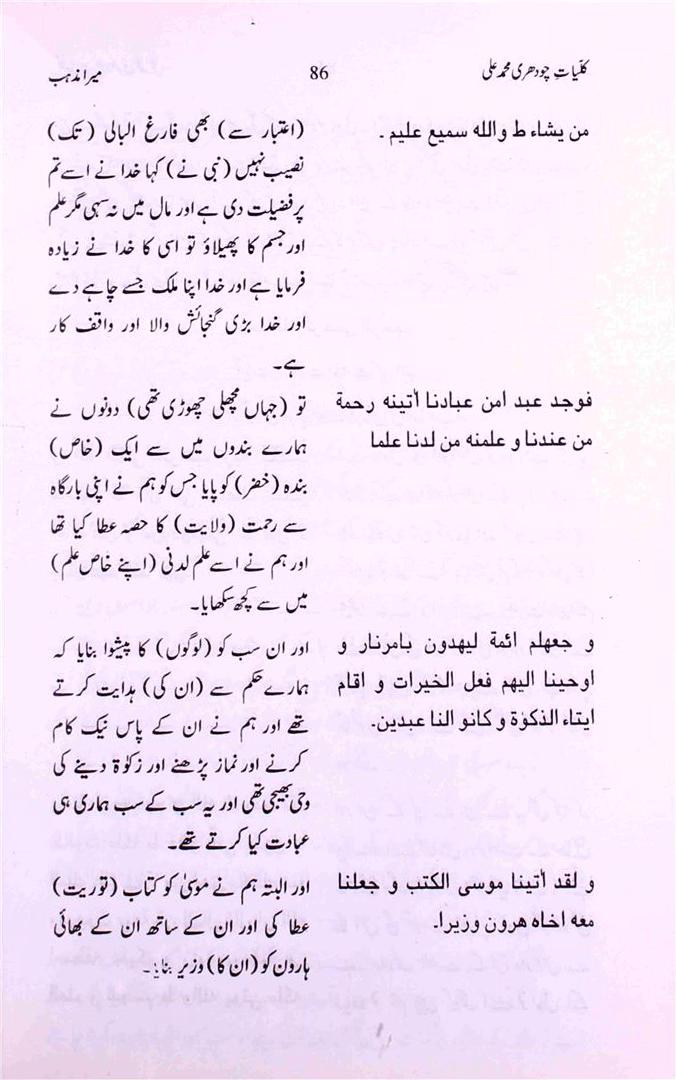 کلیاتِ چودھری محمد علی
86
میرا مذہب
من یشاء ط والله سمیع علیم ۔
(اعتبار سے) بھی فارغ البالی (تک)
نصیب نہیں (نبی نے) کہا خدا نے اسے تم
پر فضیلت دی ہے اور مال میں نہ سہی مگر علم
اور جسم کا پھیلاؤ تو اسی کا خدا نے زیادہ
فرمایا ہے اور خدا اپنا ملک جسے چاہے دے
اور خدا بڑی گنجائش والا اور واقف کار
ہے۔
فوجد عبد امن عبادنا أتینه رحمة
من عندنا و علمنه من لدنا علما
تو (جہاں مچھلی چھوڑی تھی) دونوں نے
ہمارے بندوں میں سے ایک (خاص)
بندہ (خضر) کو پایا جس کو ہم نے اپنی بارگاہ
سے رحمت (ولایت) کا حصہ عطا کیا تھا
اور ہم نے اسے علم لدنی (اپنے خاص علم)
میں سے کچھ سکھایا۔
و جعهلم ائمة لیهدون بامرنار و
اوحینا الیهم فعل الخیرات و اقام
ایتاء الذکوٰة و کانو النا عبدین۔
اور ان سب کو (لوگوں) کا پیشوا بنایا کہ
ہمارے حکم سے (ان کی) ہدایت کرتے
تھے اور ہم نے ان کے پاس نیک کام
کرنے اور نماز پڑھنے اور زکوٰۃ دینے کی
وحی بھیجی تھی اور یہ سب کے سب ہماری ہی
عبادت کیا کرتے تھے۔
و لقد أتینا موسی الکتب و جعلنا
معه اخاه هرون وزیرا۔
اور البتہ ہم نے موسیٰ کو کتاب (توریت)
عطا کی اور ان کے ساتھ ان کے بھائی
ہارون کو (ان کا) وزیر بنایا۔